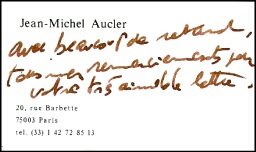 Jean-Michel Aucler
avec beaucoup de retard,
tous mes remerciements pour
votre très aimable lettre.
20, rue Barbette
75003 Paris
tel. (33) 1 42 72 85 13